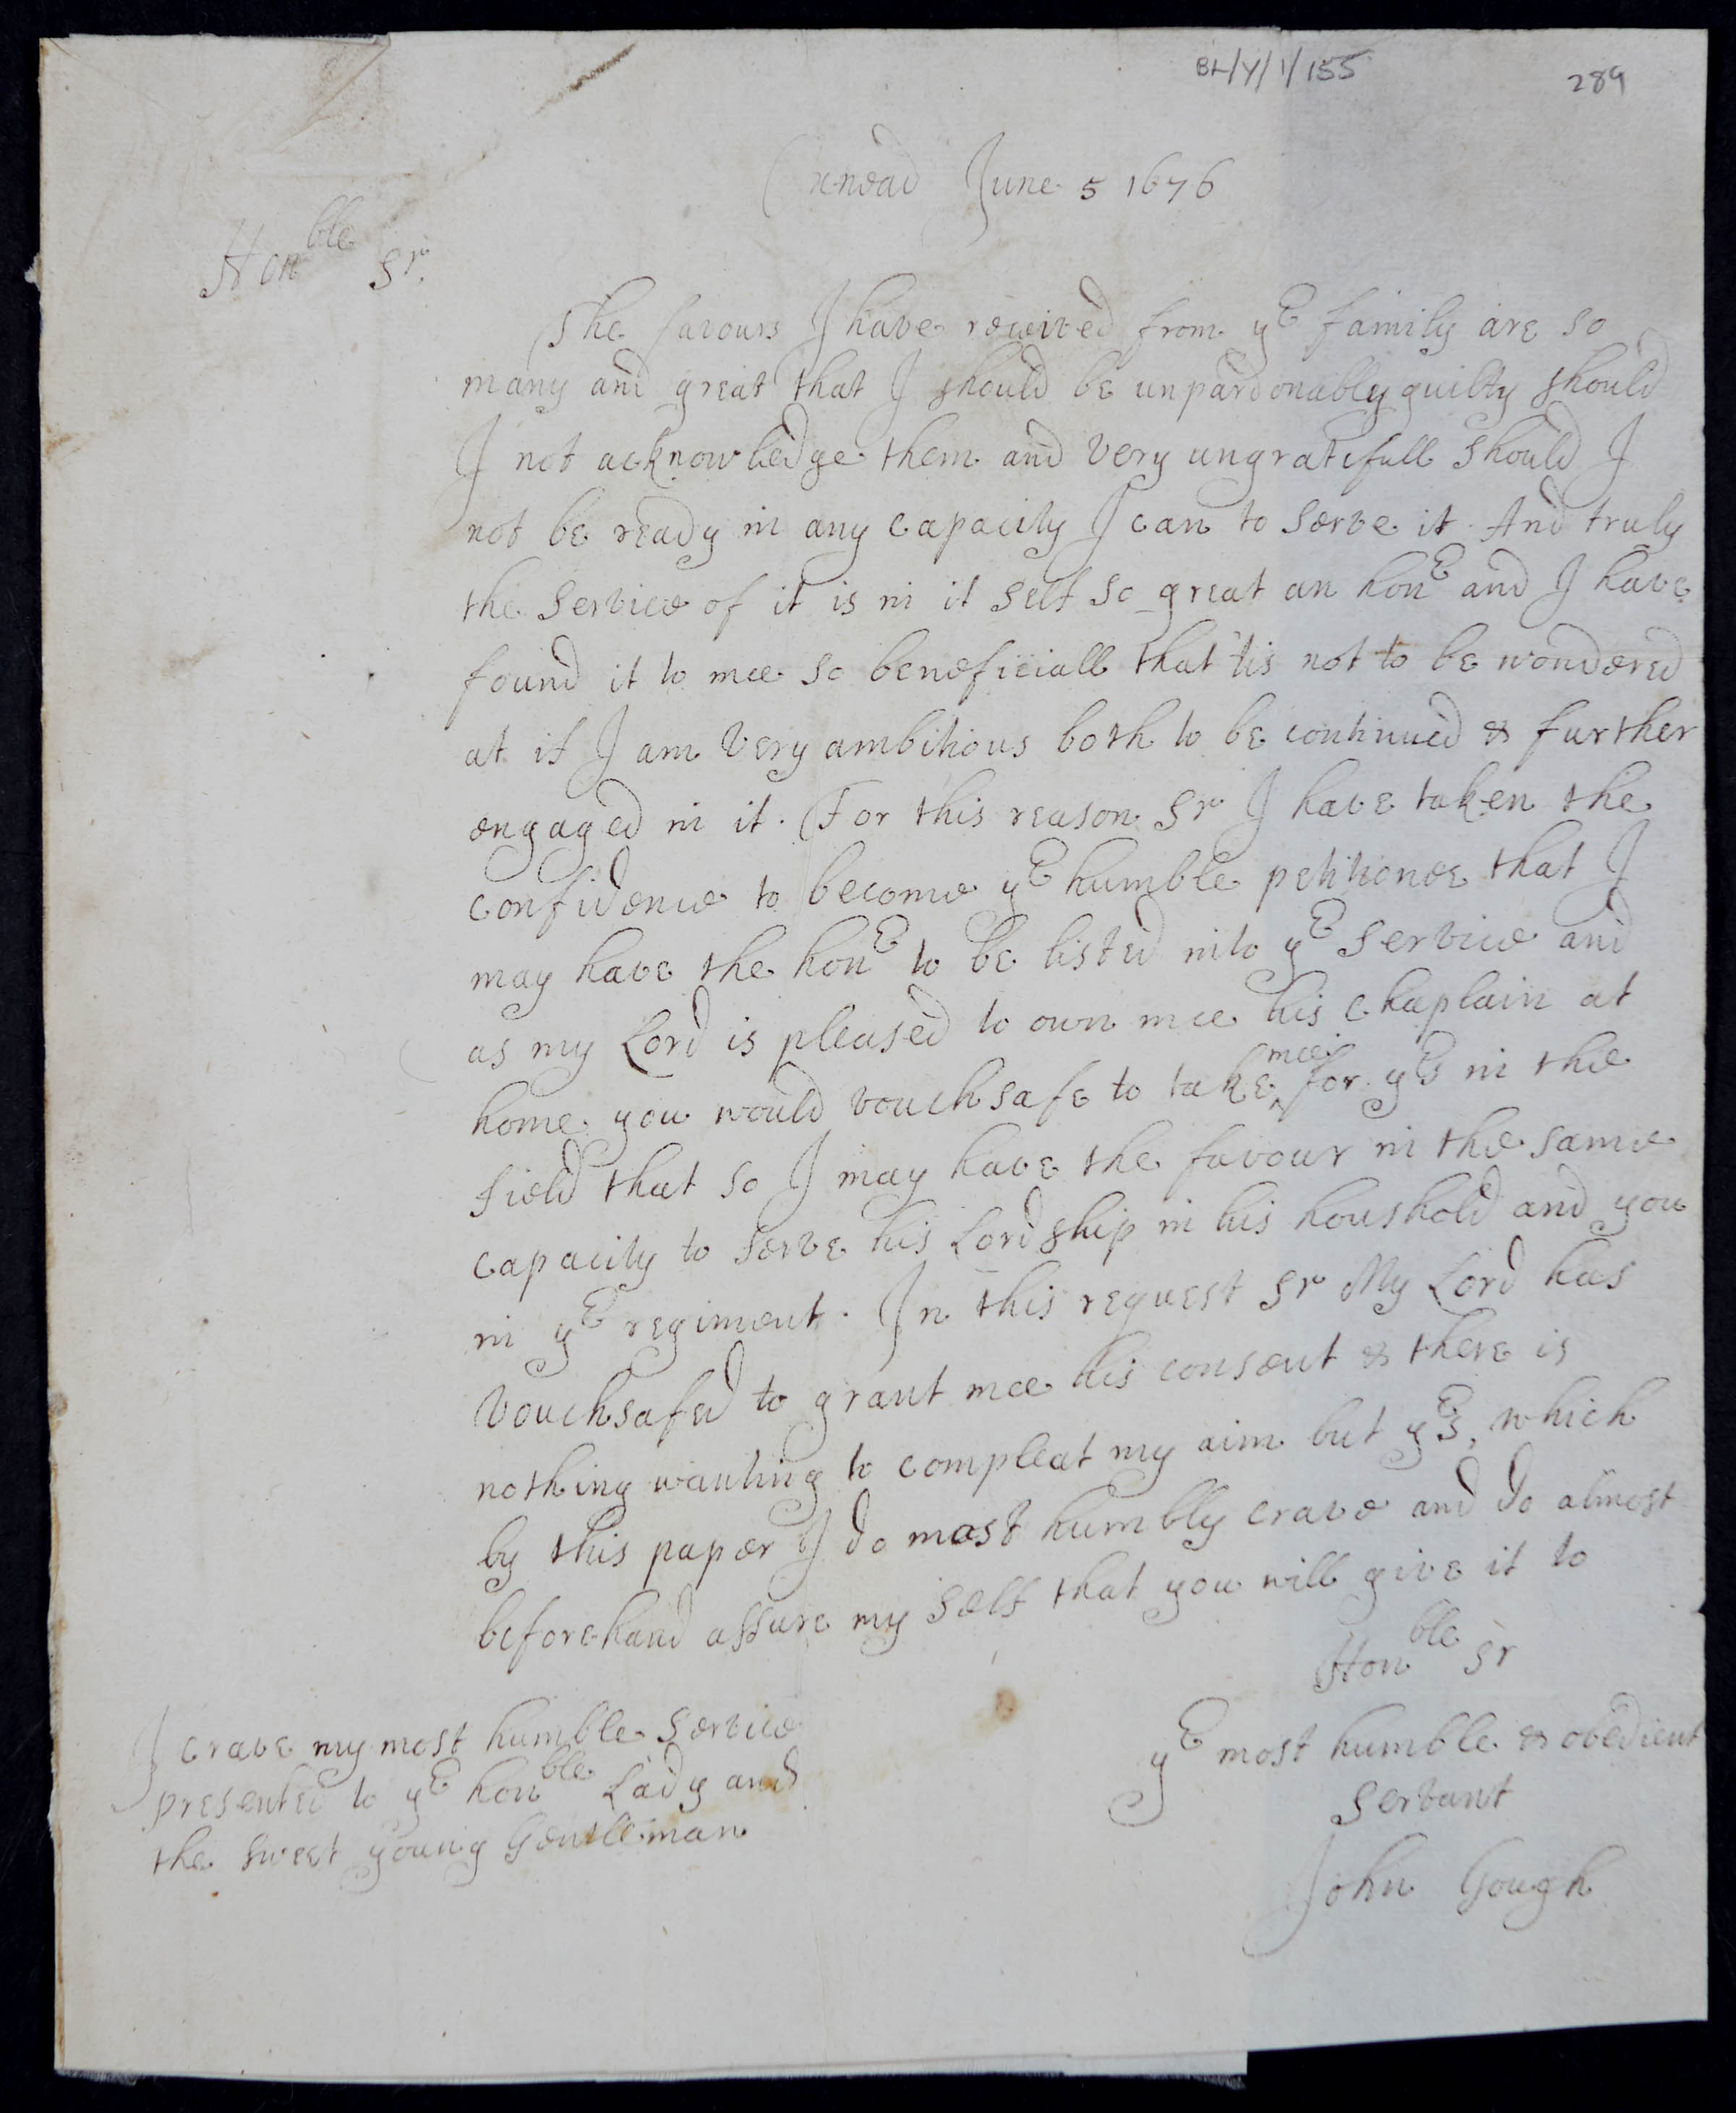 BL/Y/1/155
289
June 5 1676
Honble Sr.
The favours I have received from yr family are so
many and great that I should be unpardonably guilty should
I not acknowledge them and very ungratefull should I
not be ready in any capacity I can to serve it. And truly
the service of it is in it self so great an honr and I have
found it to mee so beneficiall that 'tis not to be wondered
at if I am very ambitious both to be continued & further
engaged in it. For this reason Sr I have taken the
confidence to become yr humble petitioner that I
may have the honr to be listed into yr service and
as my Lord is pleased to own mee his Chaplain at
home you would vouchsafe to take mee for yrs in the
field that so I may have the favour in the same
capacity to serve his Lordship in his houshold and you
in yr regiment. In this request Sr My Lord has
vouchsafed to grant mee his consent & there is
nothing wanting to compleat my aim but yrs, which
by this paper I do most humbly crave and do almost
beforehand assure my self that you will give it to
Honble Sr
yr most humble & obedient
servant
John Gough
I crave my most humble service
presented to yr honble Lady and
the sweet young Gentleman